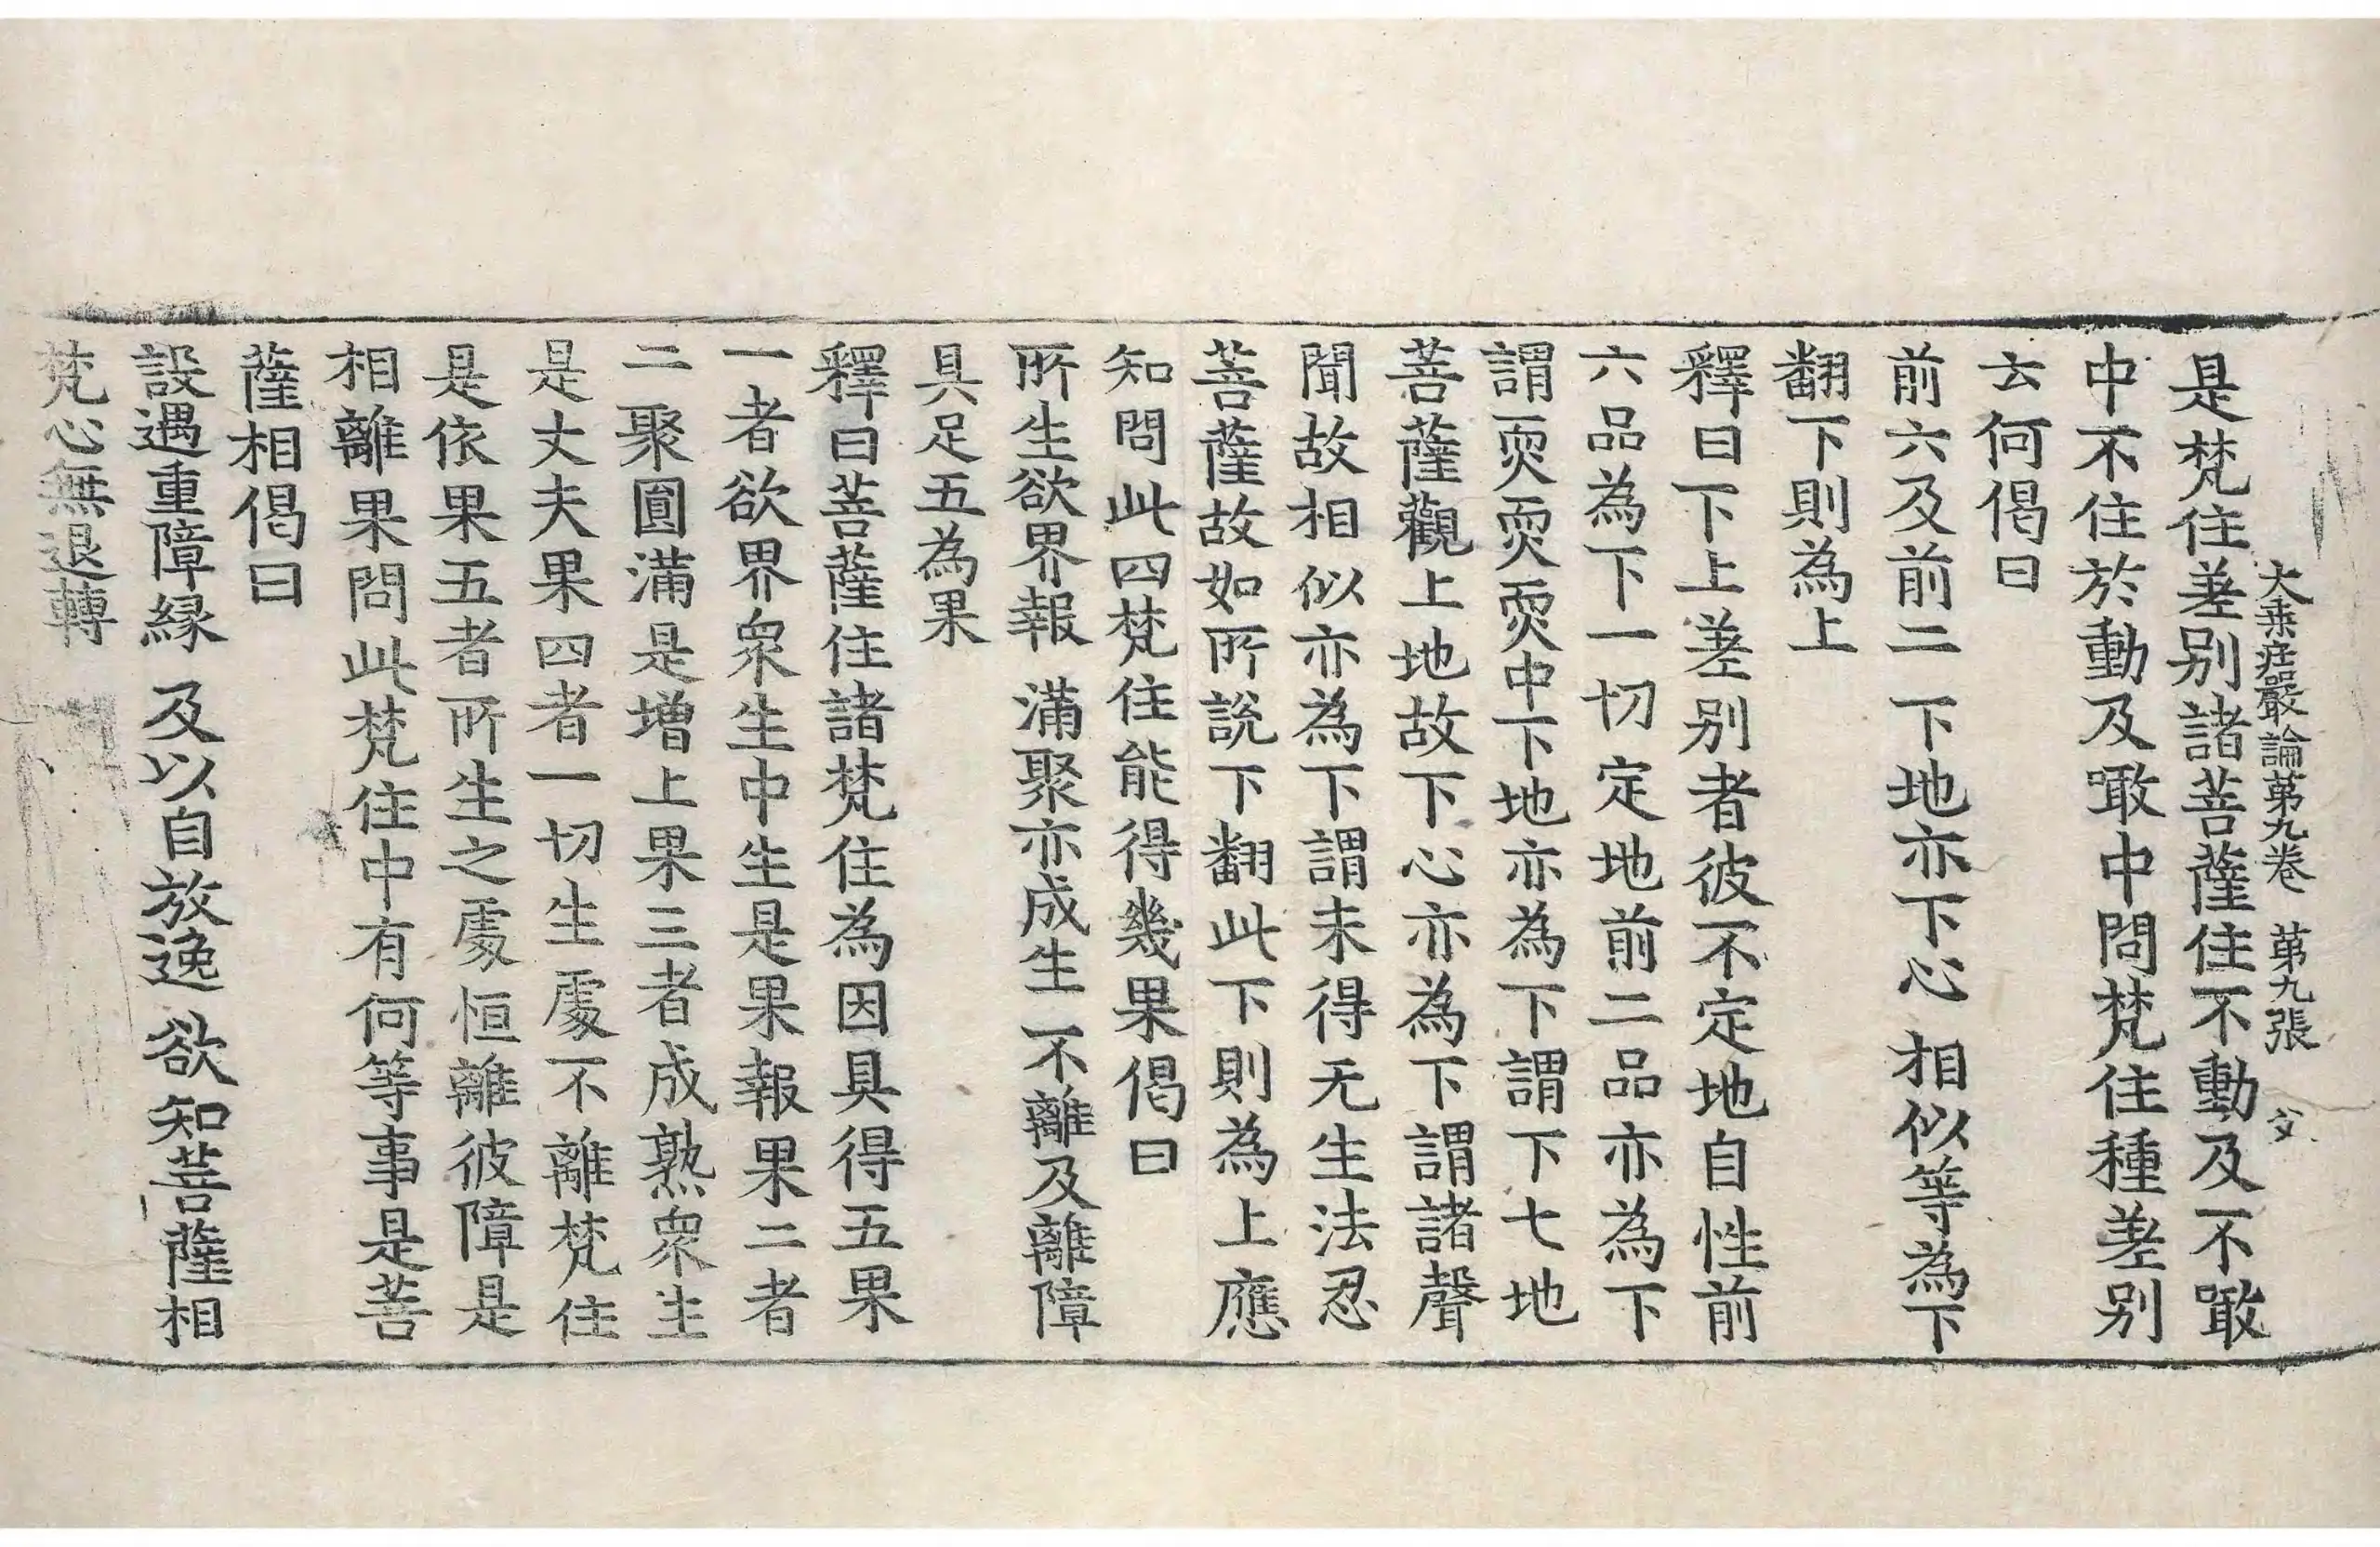 大乗庄嚴論第九卷 第九張 父
是梵住差别諸菩薩住不動及不噉
中不住於動及噉中問梵住種差别
云何偈曰
前六及前二 下地亦下心 相似等為下
翻下則為上
釋曰下上差别者彼不定地自性前
六品為下一切定地前二品亦為下
謂耎耎耎中下地亦為下謂下七地
菩薩觀上地故下心亦為下謂諸聲
聞故相似亦為下謂未得无生法忍
菩薩故如所說下翻此下則為上應
知問此四梵住能得幾果偈曰
所生欲界報 滿聚亦成生 不離及離障
具足五為果
釋曰菩薩住諸梵住為因具得五果
一者欲界衆生中生是果報果二者
二聚圓滿是增上果三者成熟衆生
是丈夫果四者一切生處不離梵住
是依果五者所生之處恒離彼障是
相離果問此梵住中有何等事是菩
薩相偈曰
設遇重障緣 及以自放逸 欲知菩薩相
梵心無退轉